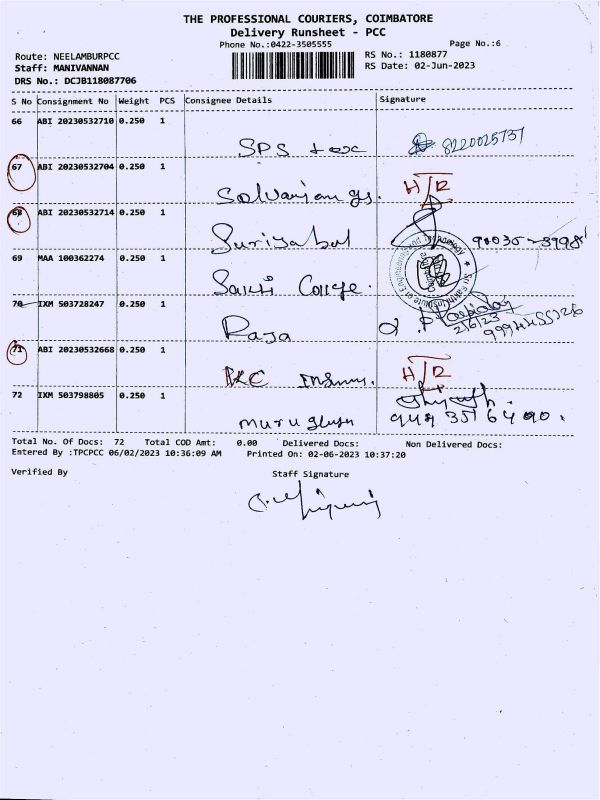 THE PROFESSIONAL COURIERS, COIMBATORE
Delivery Runsheet - PCC
Phone No.:0422-3505555
Page No.:6
Route: NEELAMBURPCC
RS No.: 1180877
Staff: MANIVANNAN
RS Date: 02-Jun-2023
DRS No.: DCJB118087706
S No Consignment No Weight PCS Consignee Details Signature
66 ABI 20230532710 0.250 1
SPS tex 8220025737
67 ABI 20230532704 0.250 1
H/R
68 ABI 20230532714 0.250 1
69 MAA 100362274 0.250 1
Sakthi College.
70 IXM 503728247 0.250 1
Raja
2/6/23
71 ABI 20230532668 0.250 1
H/R
72 IXM 503798805 0.250 1
Total No. Of Docs: 72 Total COD Amt: 0.00 Delivered Docs: Non Delivered Docs:
Entered By :TPCPCC 06/02/2023 10:36:09 AM Printed On: 02-06-2023 10:37:20
Verified By Staff Signature